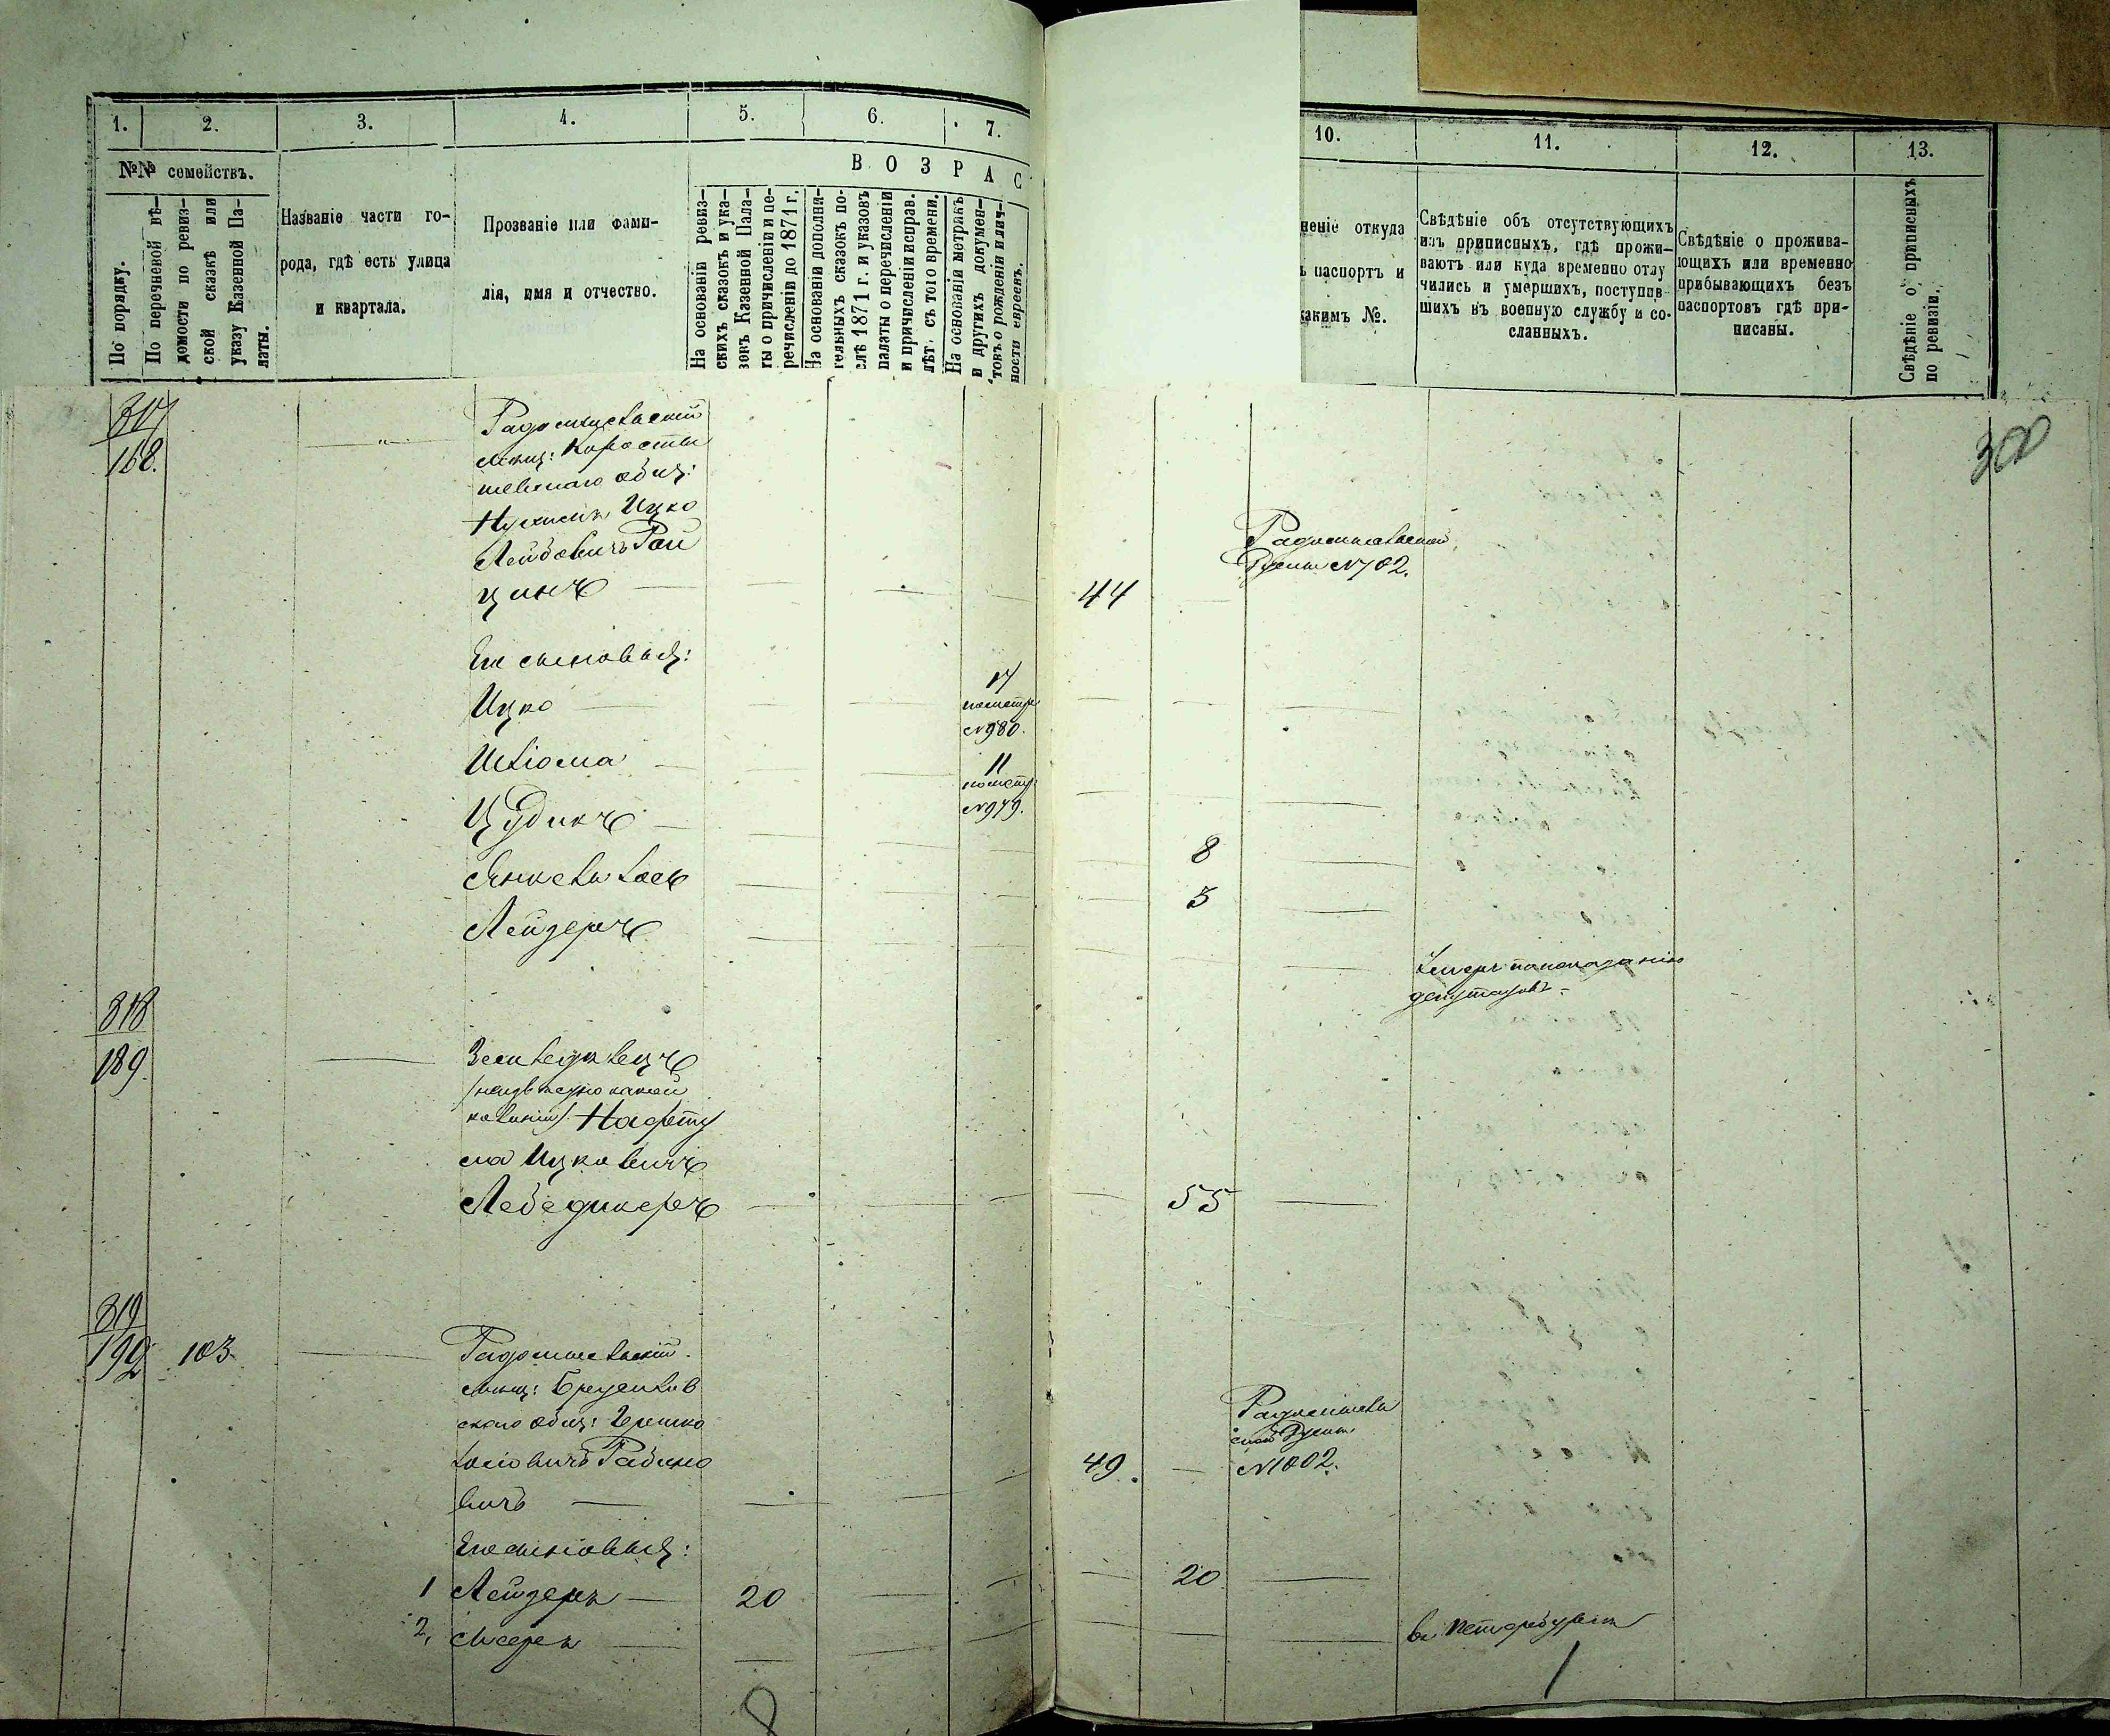 1.
2.
3.
4.
5.
6.
7.
№№ семействъ.
По порядку.
По перечневой вѣ-
домости по ревиз-
ской сказкѣ или
указу Казенной Па-
латы.
Названіе части го-
рода, гдѣ есть улица
и квартала.
Прозваніе или фами-
лія, имя и отчество.
ВОЗРАС
На основаніи ревиз-
скихъ сказокъ и ука-
зовъ Казенной Пала-
ты о причисленіи и пе-
речисленіи до 1871 г.
На основаніи дополни-
тельныхъ сказокъ по-
слѣ 1871 г. и указовъ
палаты о перечисленіи
и причисленіи исправ.
лѣт. съ того времени.
На основаніи метрикъ
и другихъ докумен-
товъ о рожденіи и лич-
ности евреевъ.
10.
11.
12.
13.
неніе откуда
ъ паспортъ и
какимъ №.
Свѣдѣніе объ отсутствующихъ
изъ приписныхъ, гдѣ прожи-
ваютъ или куда временно отлу
чились и умершихъ, поступив-
шихъ въ военную службу и со-
сланныхъ.
Свѣдѣніе о прожива-
ющихъ или временно
прибывающихъ безъ
паспортовъ гдѣ при-
писаны.
Свѣдѣніе о приписныхъ
по ревизіи.
300
168.
Радомысльскій
мѣщ: Коросты
шевскаго общ:
Ицко
Лейбовичъ Рай
цинъ
44
Радомысльской
Думы №702.
Его сыновья:
Ицко
17
по метр
№980.
11
по метр.
№979.
8
5
Лейзеръ
умеръ по показанію
депутатовъ.
818
189.
Ицковичъ
Лебедикеръ
55
819
192
103.
Радомысльскій
мѣщ:
скаго общ: Гершко
Рабино
вичъ
49.
Радомысль
ской Думы
№1002.
Его сыновья:
1 Лейзеръ
20
20
2,
въ Петербургѣ
1